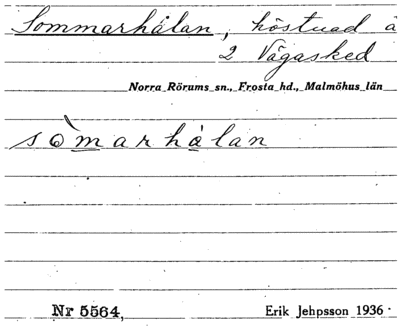 Sommarhålan, höstvad å
2 Vägasked
Norra Rörums sn., Frosta hd., Malmöhus län
sòmarhålan
Nr 5564, Erik Jehpsson 1936